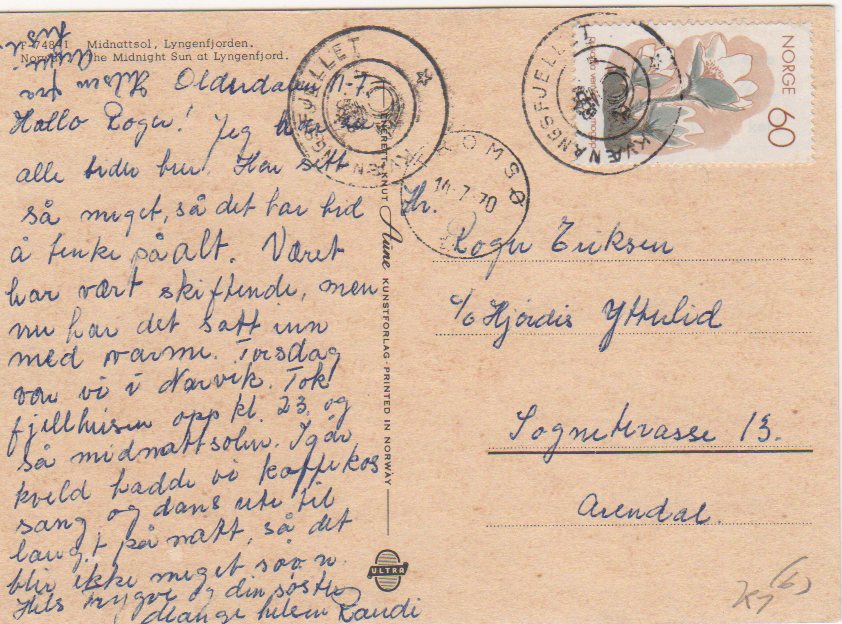 F-7484-1 Midnattsol, Lyngenfjorden.
Norway. The Midnight Sun at Lyngenfjord.
Hilsen fra
Olderdalen 11-7.
Hallo Roger! Jeg har
alle tider her. Har sett
så meget, så det tar tid
å tenke på alt. Været
har vært skiftende, men
nu har det satt inn
med varme. Torsdag
var vi i Narvik. Tok
fjellheisen opp kl. 23. og
så midnattsolen. Igår
kveld hadde vi kaffekos
sang og dans ute til
langt på natt, så det
blir ikke meget søvn.
Hils Trygve og din søster
Mange hilsen Randi
ENERETT: KNUT Aune KUNSTFORLAG - PRINTED IN NORWAY
ULTRA
KVÆNANGSFJELLET
TROMSØ
14-7-70
KVÆNANGSFJELLET
NORGE 60
Hr.
Roger Eriksen
c/o Hjørdis Ytterlid
Sogneterasse 13.
Arendal.